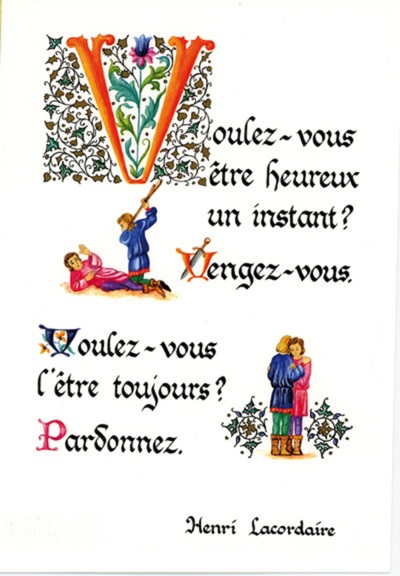 Voulez-vous
être heureux
un instant?
Vengez-vous.
Voulez-vous
l'être toujours?
Pardonnez.
Henri Lacordaire